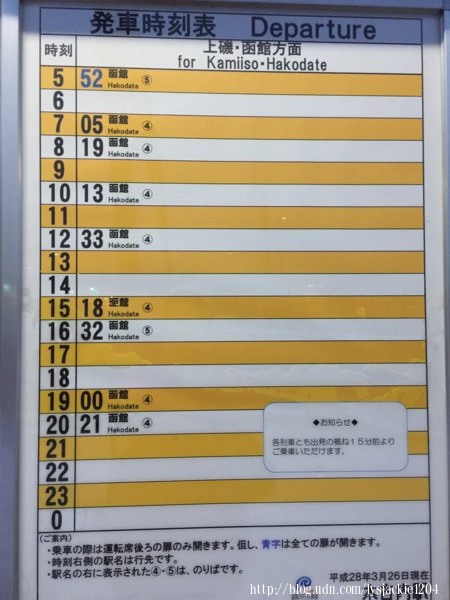 発車時刻表 Departure
時刻 上磯・函館方面
for Kamiiso・Hakodate
5 52 函館 Hakodate ⑤
6
7 05 函館 Hakodate ④
8 19 函館 Hakodate ④
9
10 13 函館 Hakodate ④
11
12 33 函館 Hakodate ④
13
14
15 18 函館 Hakodate ④
16 32 函館 Hakodate ⑤
17
18
19 00 函館 Hakodate ④
20 21 函館 Hakodate ④
21
22
23
0
◆お知らせ◆
各列車とも出発の概ね15分前より
ご乗車いただけます。
(ご案内)
・乗車の際は運転席後ろの扉のみ開きます。但し、青字は全ての扉が開きます。
・時刻右側の駅名は行先です。
・駅名の右に表示された④・⑤は、のりばです。
平成28年3月26日現在
http://blog.udn.com/lvsjackie1204